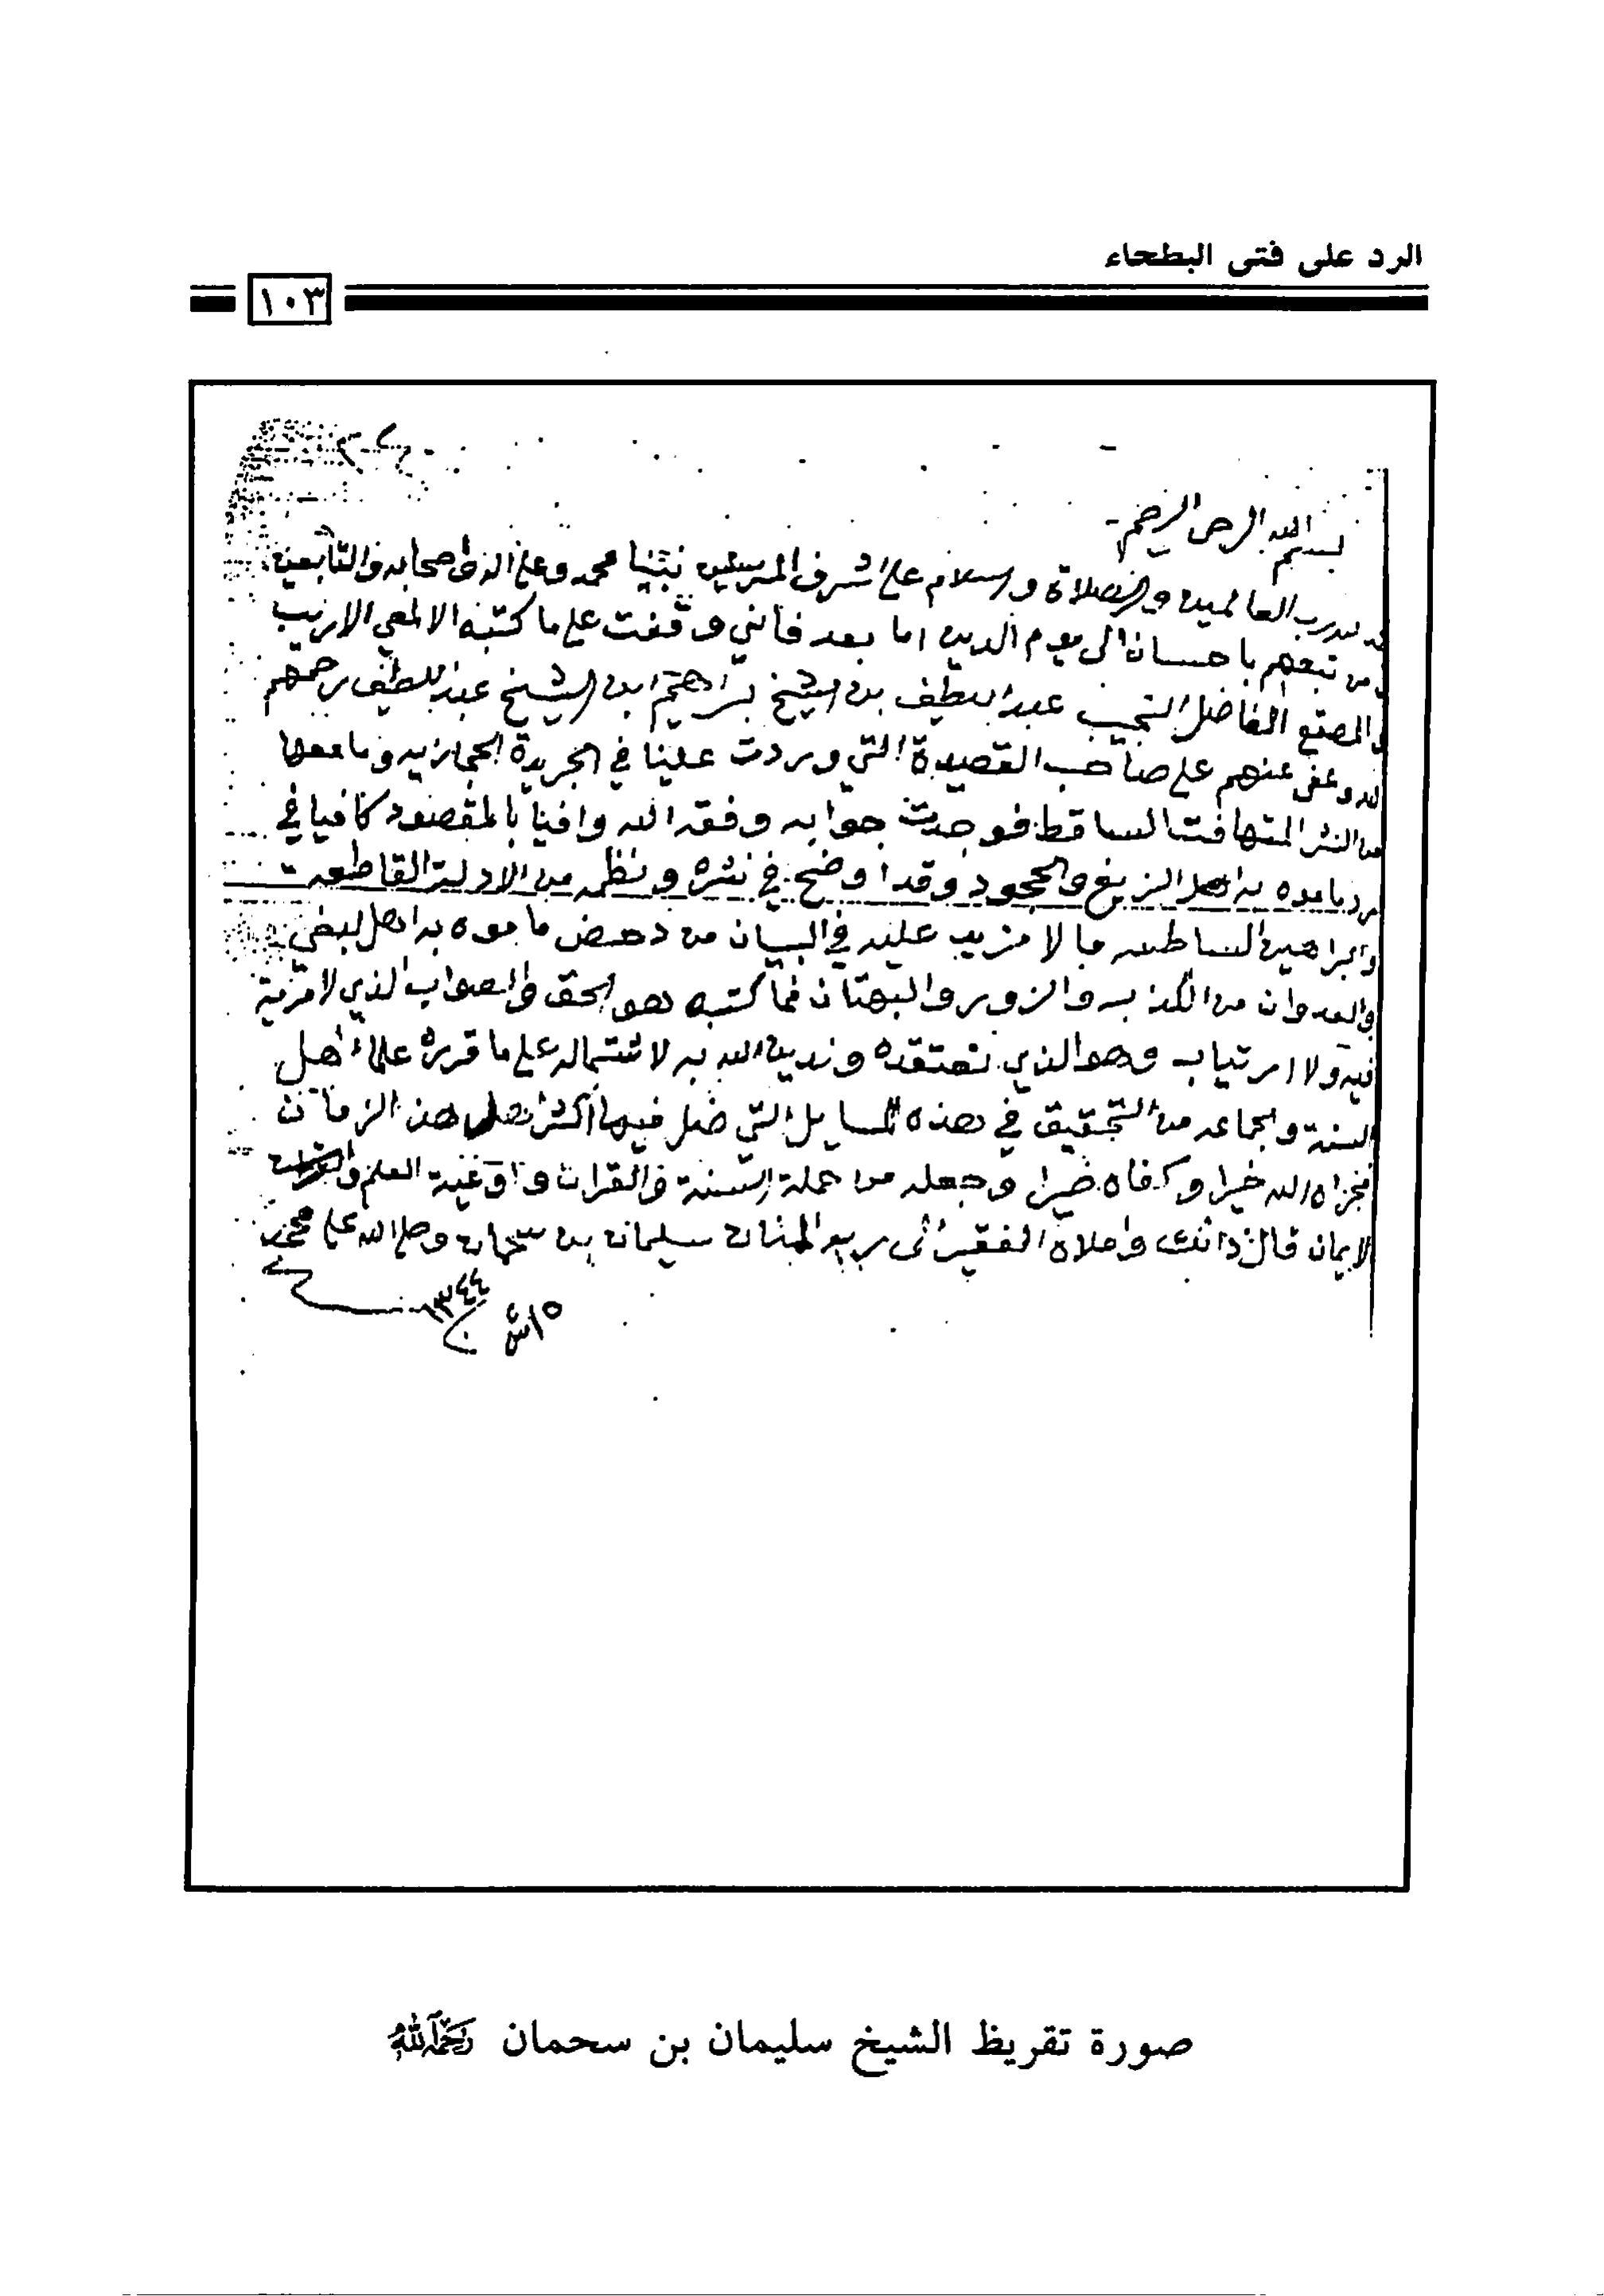 الرد على فتى البطحاء
١٠٣
بسم الله الرحمن الرحيم
لله رب العالمين والصلاة والسلام على اشرف المرسلين نبينا محمد وعلى اله واصحابه والتابعين
ومن تبعهم باحسان الى يوم الدين اما بعد فأني وقفت على ما كتبه الالمعي الاريب
والمصقع الفاضل النجيب عبد اللطيف بن الشيخ ابراهيم ابن الشيخ عبد اللطيف رحمهم
الله وعفى عنهم على صاحب القصيدة التي وردت علينا في الجريدة الحجازيه وما معها
من النثر المتهافت الساقط فوجدت جوابه وفقه الله وافيا بالمقصود كافيا في
رد ما موه به اهل الزيغ والجحود وقد اوضح في نثره ونظمه من الادلة القاطعه
والبراهين الساطعه ما لا مزيد عليه في البيان من دحض ما موه به اهل البغي
والعدوان من الكذب والزور والبهتان فما كتبه هو الحق والصواب الذي لا مرية
فيه ولا ارتياب وهو الذي نعتقده وندين الله به لاشتماله على ما قرره علماء اهل
السنة والجماعه من التحقيق في هذه المسايل التي ضل فيها اكثر اهل هذا الزمان
فجزاه الله خيرا وكفاه ضيرا وجعله من حملة السنة والقران واوعية العلم
الايمان قال ذالك واملاه الفقير الى ربه المنان سليمان بن سحمان وصلى الله على محمد
١٥ ش ١٣٤٤
صورة تقريظ الشيخ سليمان بن سحمان رَحِمَهُ اللَّهُ